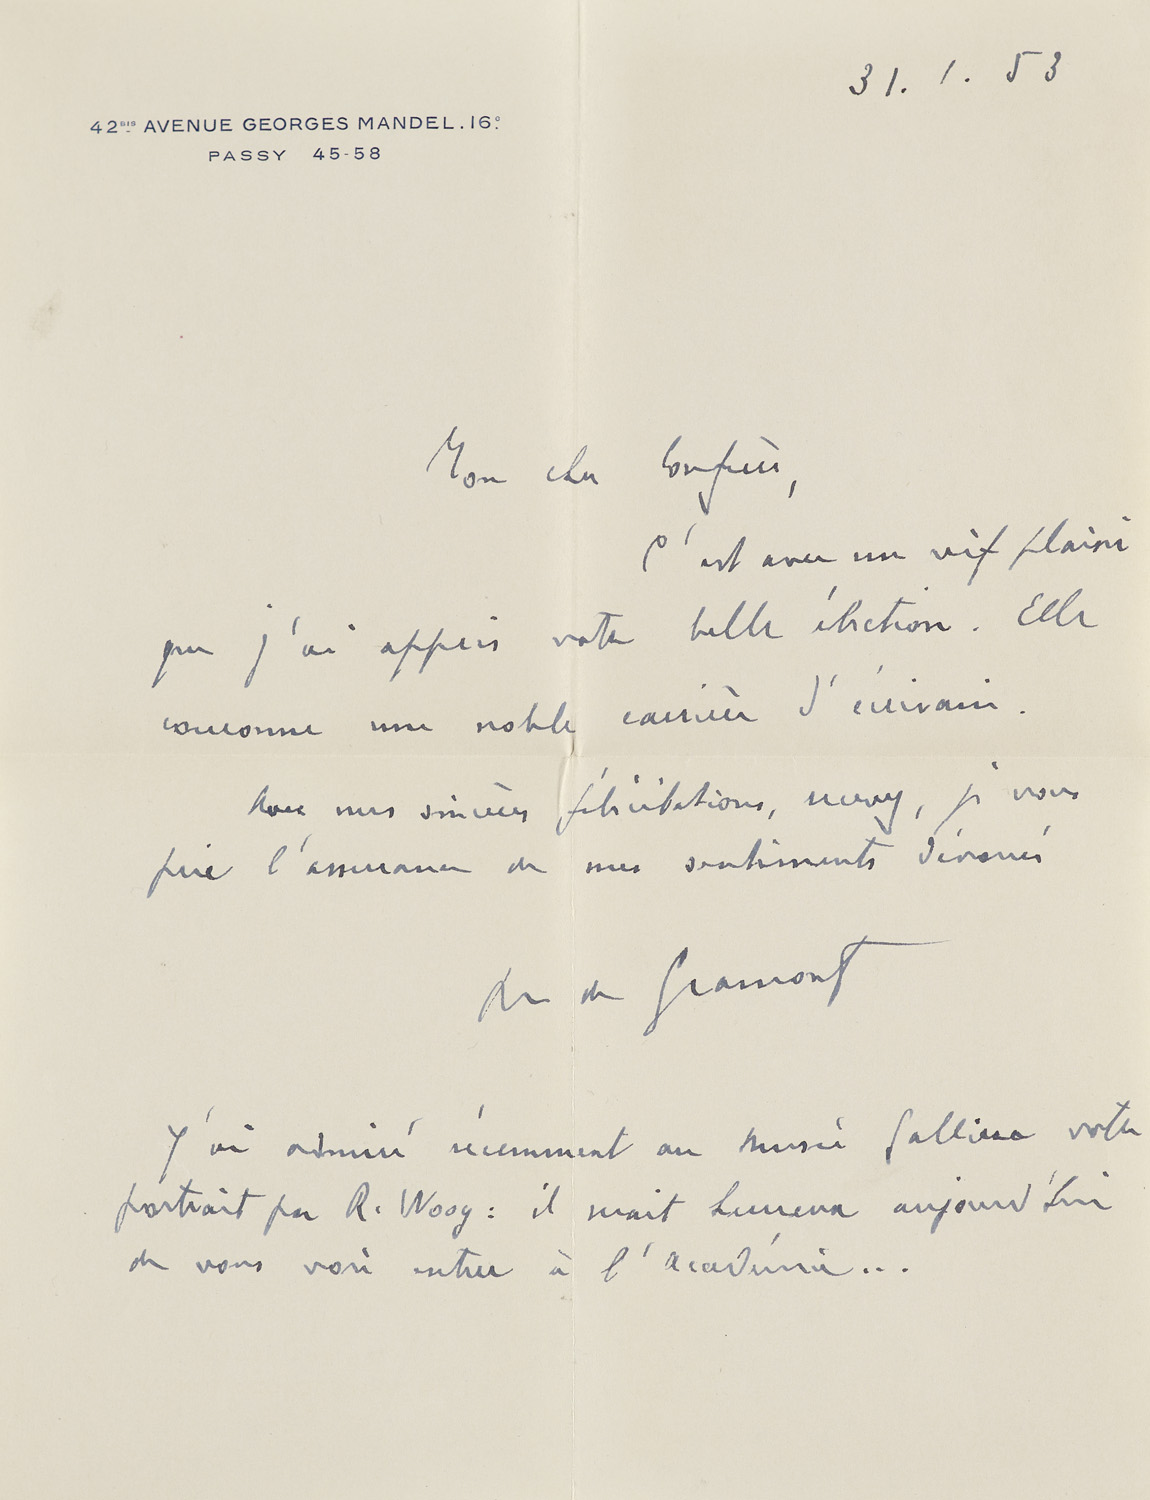 31. 1. 53
42 BIS AVENUE GEORGES MANDEL. 16e
PASSY 45-58
Mon cher Confrère,
C'est avec un vif plaisir
que j'ai appris votre belle élection. Elle
couronne une noble carrière d'écrivain.
Avec mes sincères félicitations, je vous
prie l'assurance de mes sentiments dévoués
de Gramont
J'ai admiré récemment au Musée Galliera votre
portrait par R. Woog : il serait heureux aujourd'hui
de vous voir entrer à l'Académie...